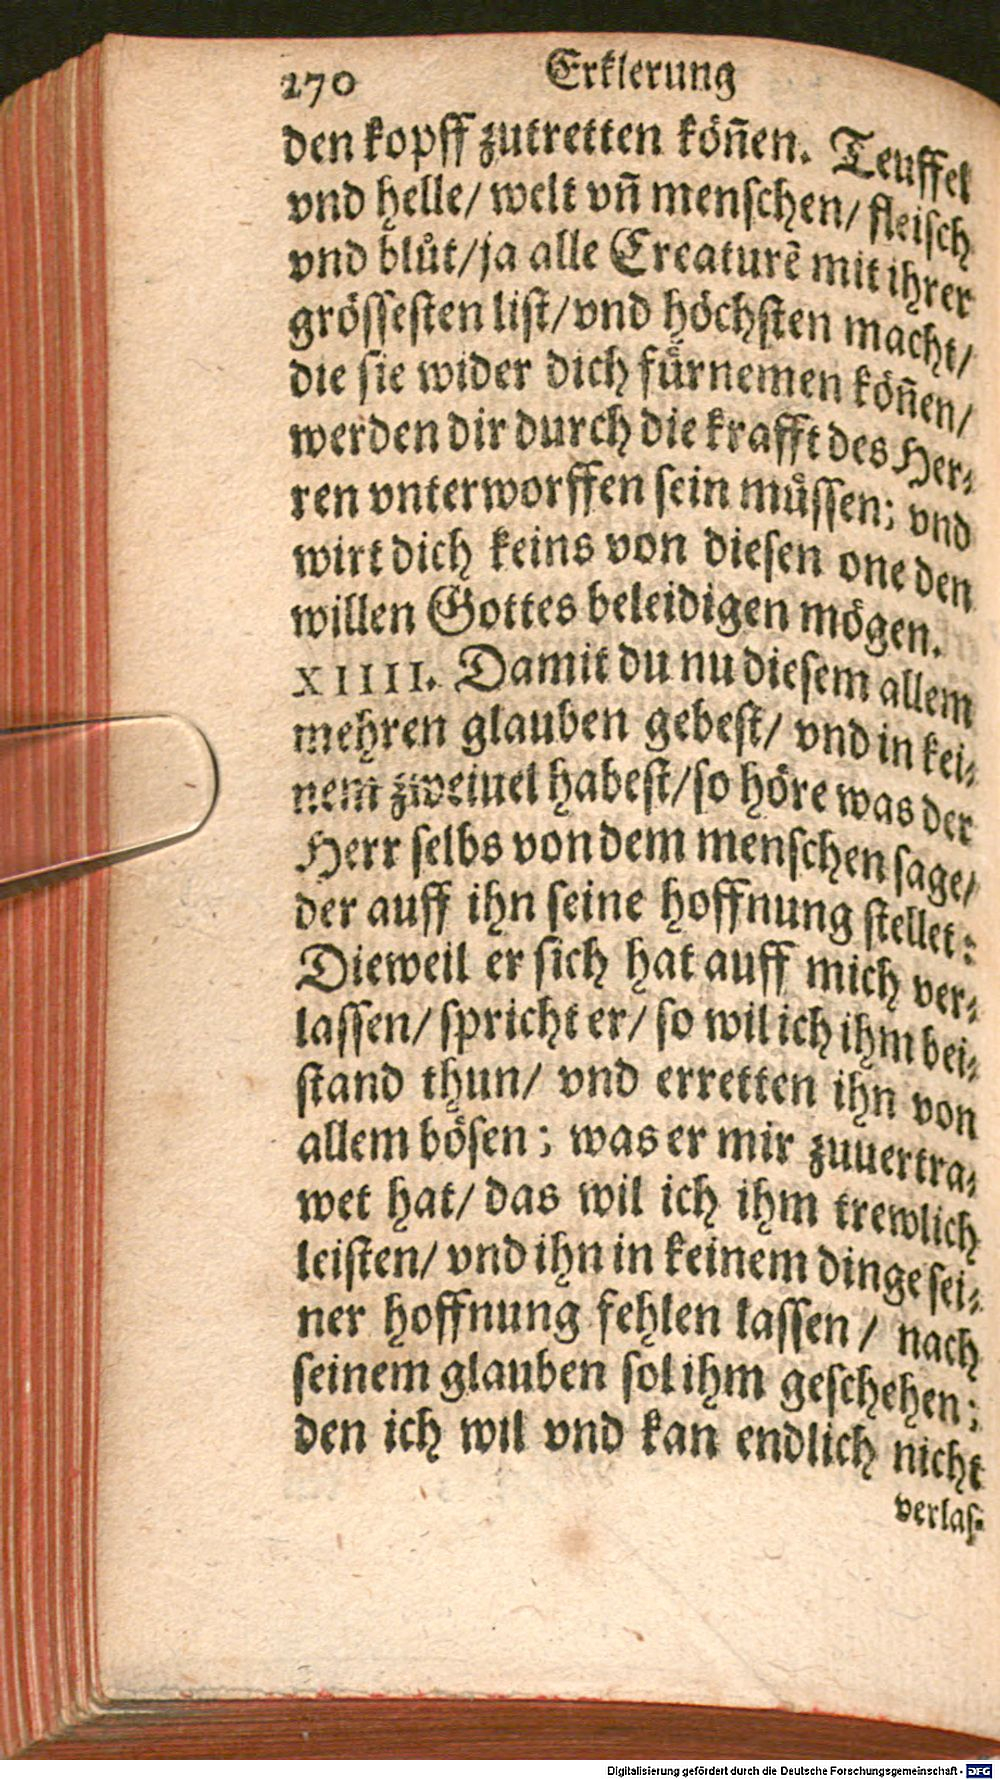 270 Erklerung
den kopff zutretten köñen. Teuffel
vnd helle/ welt vñ menschen/ fleisch
vnd blůt/ja alle Creaturẽ mit ihrer
grössesten list/vnd höchsten macht/
die sie wider dich fürnemen köñen/
werden dir durch die krafft des Her⸗
ren vnterworffen sein müssen; vnd
wirt dich keins von diesen one den
willen Gottes beleidigen mögen.
XIIII. Damit du nu diesem allem
mehren glauben gebest/ vnd in kei⸗
nem zweiuel habest/so höre was der
Herr selbs von dem menschen sage/
der auff ihn seine hoffnung stellet:
Dieweil er sich hat auff mich ver⸗
lassen/ spricht er/ so wil ich ihm bei⸗
stand thun/ vnd erretten ihn von
allem bösen; was er mir zuuertra⸗
wet hat/ das wil ich ihm trewlich
leisten/ vnd ihn in keinem dinge sei⸗
ner hoffnung fehlen lassen/ nach
seinem glauben sol ihm geschehen;
den ich wil vnd kan endlich nicht
verlas⸗
Digitalisierung gefördert durch die Deutsche Forschungsgemeinschaft - DFG